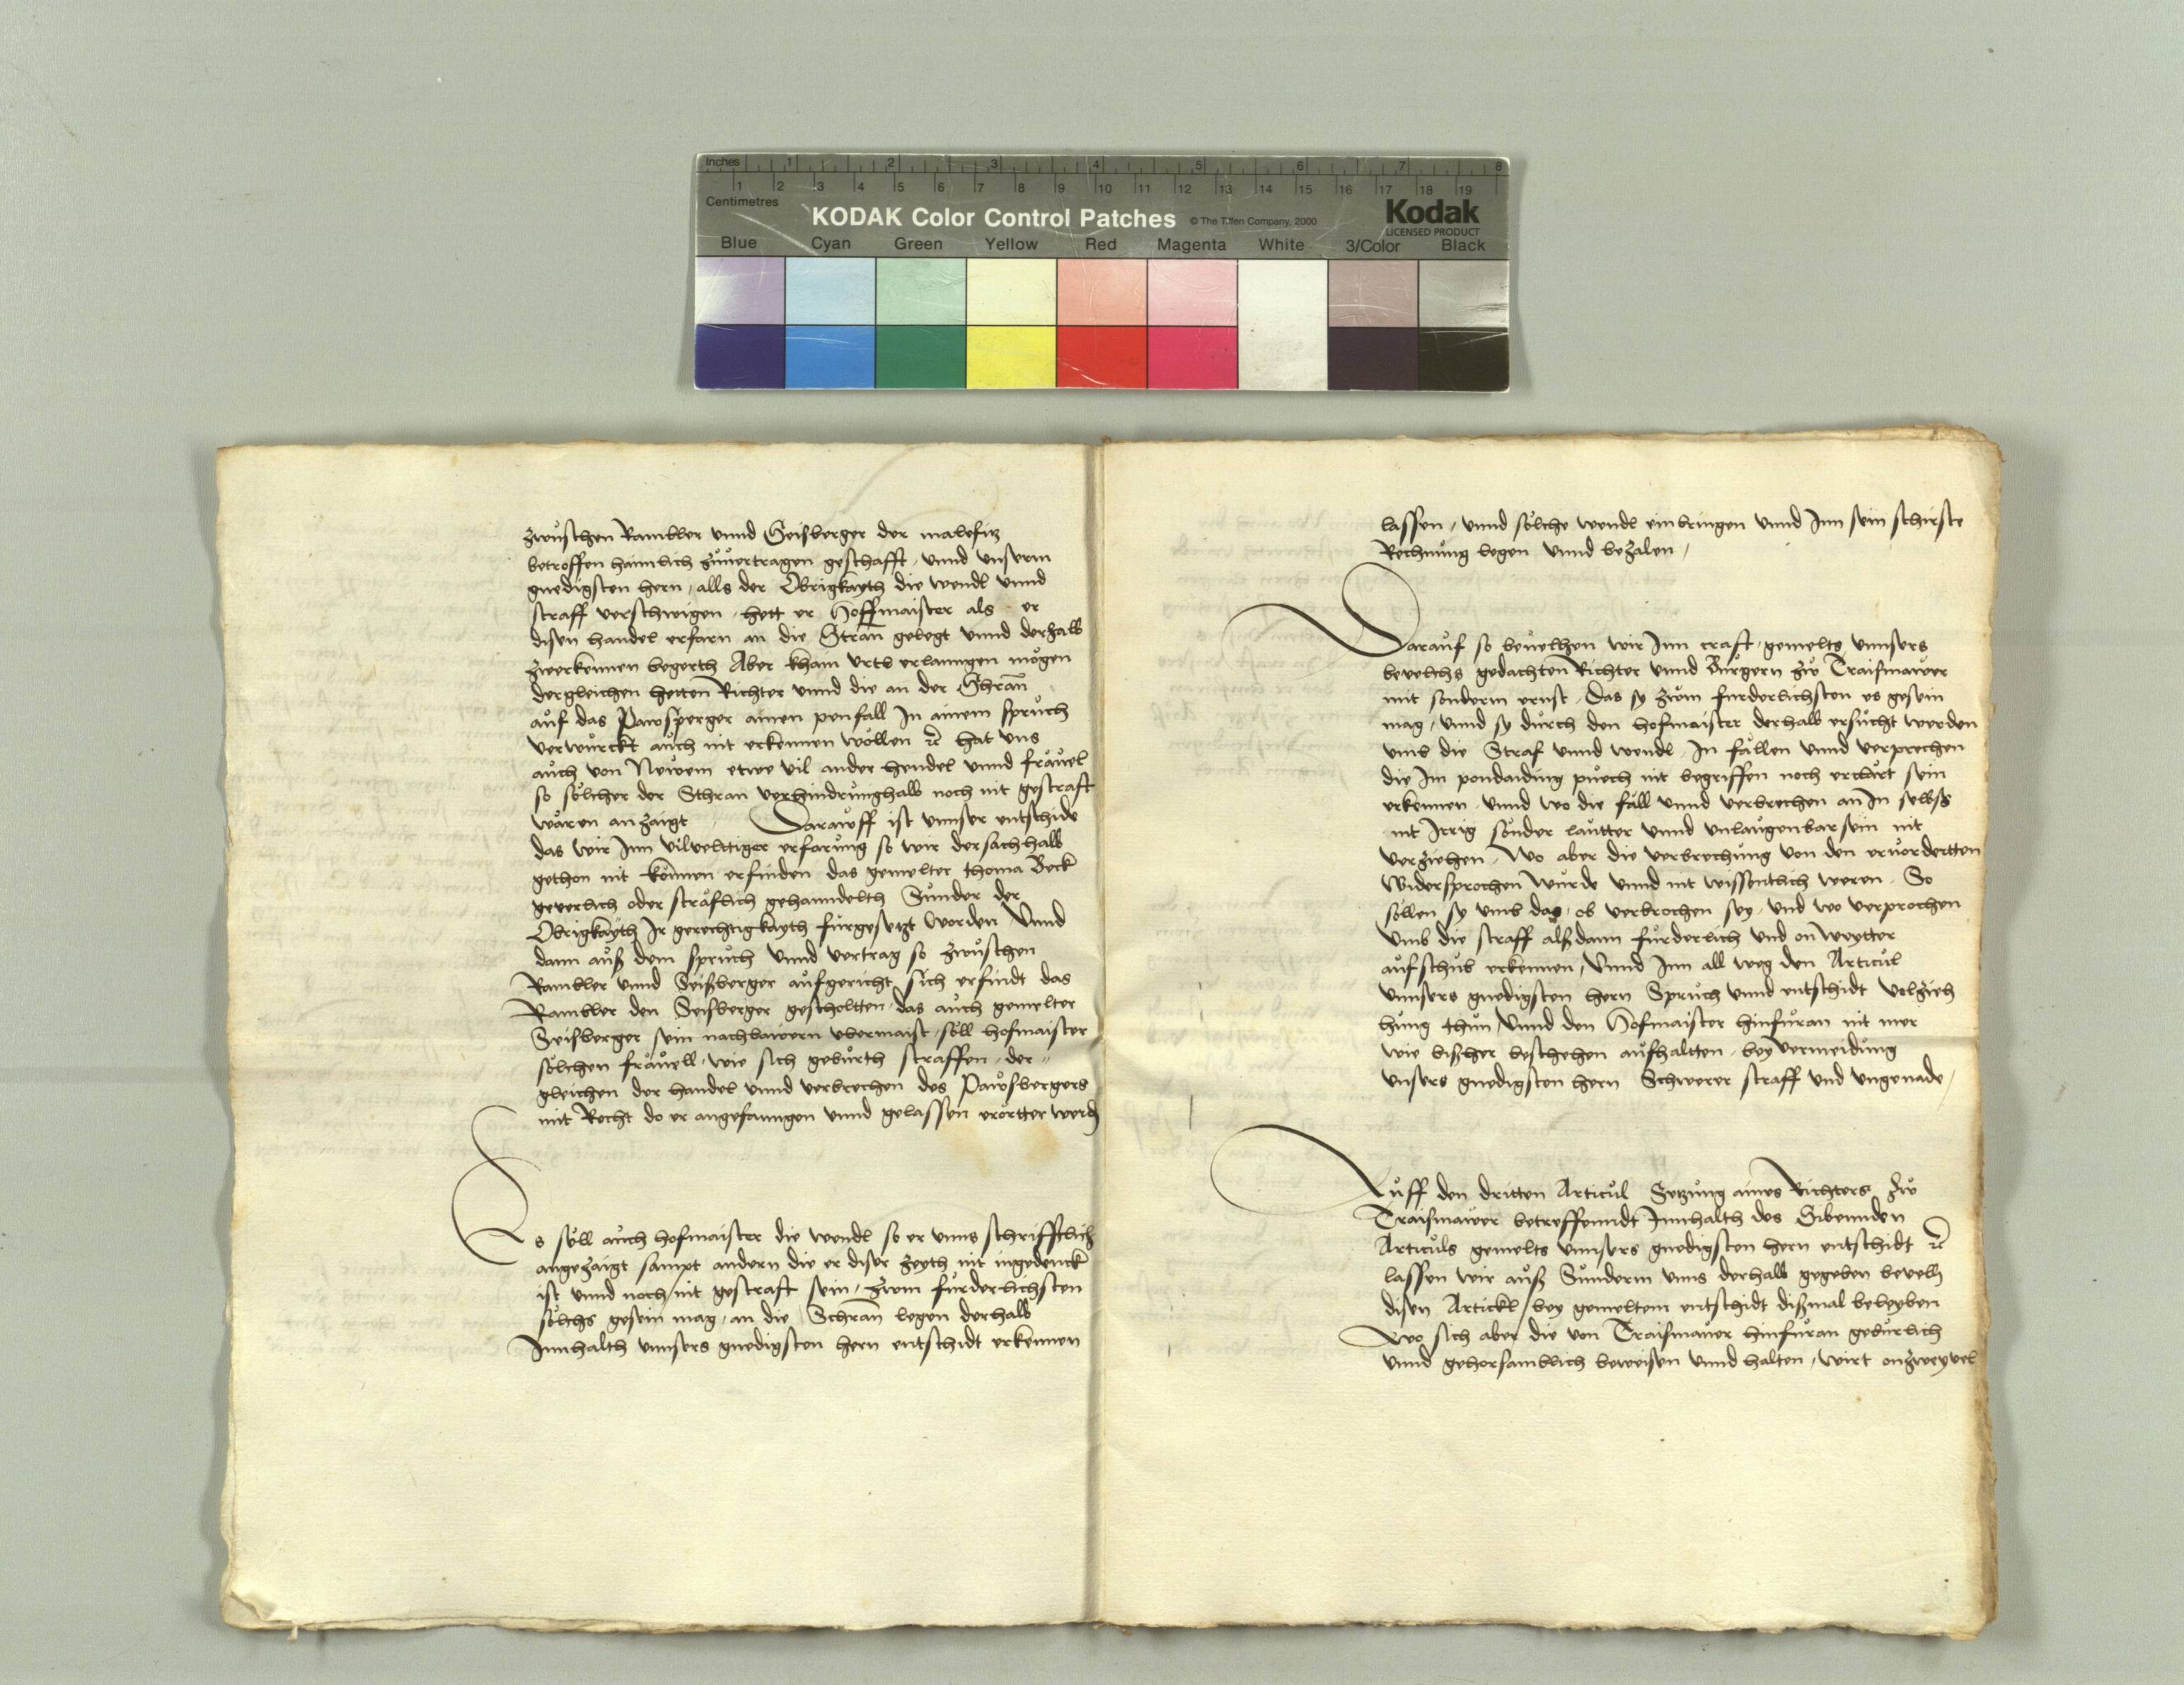 Inches 1 2 3 4 5 6 7 8
1 2 3 4 5 6 7 8 9 10 11 12 13 14 15 16 17 18 19
Centimetres
KODAK Color Control Patches © The Tiffen Company, 2000 Kodak
LICENSED PRODUCT
Blue Cyan Green Yellow Red Magenta White 3/Color Black
zwuschen Rambler unnd Geisberger der malefitz
betroffen haimlich zuvertragen geschafft, unnd unserm
gnedigsten hern, alls der Obrigkayth die wendl unnd
straff verschwigen, hett er Hoffmaister als er
disen handel erfarn an die Stran gelegt unnd derhalb
zuerkennen begerth Aber kham urtl erlanngen mögen
dergleichen hetten Richter unnd die an der Schran
auf das Pawsperger ainen penfall In ainem spruch
verwurckt auch nit erkennen wöllen etc hat uns
auch von Newem etwe vil ander hendel unnd fräuel
so sölcher der Schran verhindrunghalb noch nit gestraft
wären anzaigt Darauff ist unnser entschide
das wir Inn vilveltiger erfarung so wir dersachhalb
gethon nit können erfinden das gemelter thoma Beck
geverlich oder sträflich gehanndelth Sunder der
Obrigkäyth Ir gerechtigkayth furgesetzt worden Unnd
dann auß dem spruch unnd vertrag so zwuschen
Rambler unnd Seisberger aufgericht sich erfindt das
Rambler den Seisberger gescholtten, das auch gemelter
Seisberger sein nachbawern ubermaist, söll hofmaister
sölchen fräuell, wie sich geburth straffen, der
gleichen der handel unnd verbrechen des Pawsbergers
mit Recht do er angefanngen unnd gelassen erörtter werd
Es söll auch hofmaister die wendl so er unns schrifftlich
angezaigt sampt andern die er diser zeyth nit ingedenck
ist unnd noch nit gestraft sein, zum furderlichsten
sölchs gesein mag, an die Schran legen derhalb
Innhalth unnsers gnedigsten hern entschidt erkennen
lassen, unnd sölche wendl einbringen unnd Inn sein schirste
Rechnung legen unnd bezalen,
Darauf so bevelhen wir Inn craft, gemelts unnsers
bevelchs gedachten Richter unnd Burgern zu Traismawer
mit sonderm ernst, Das sy zum furderlichsten es gesein
mag, unnd sy durch den hofmaister derhalb ersucht werden
umb die Straf unnd wendl, In fällen unnd verprechen
die Im pondaiding puech nit begriffen noch erclärt sein
erkennen, unnd wo die fäll unnd verbrechen an In selbs
nit Irrig sonder lautter unnd unlaugenbar sein nit
verziehen, Wo aber die verbrechung von den ervordertten
Widersprochen wurde unnd nit wissentlich weren, So
söllen sy umb das, ob verbrochen sey, und wo verprochen
Umb die straff alßdann furderlich und on weytter
aufschub erkennen, Unnd Inn all weg den Articul
unnsers gnedigsten hern Spruch unnd entschidt volzieh
hung thun, Unnd den Hofmaister hinfuran nit mer
wie bißher beschehen aufhaltten, bey vermeidung
unsers gnedigsten hern Schwerer straff und ungenade,
Auff den dritten Articul Setzung aines Richters zu
Traismawer betreffenndt Innhalth des Sibennden
Articuls gemelts unnsers gnedigsten hern entschidt etc
lassen wir auß Sunderm unns derhalb gegeben bevelh
disen Artickl, bey gemeltem entschidt dißmal beleyben
Wo sich aber die von Traismauer hinfuran geburlich
unnd gehorsamblich beweisen unnd halten, wirt onzweyvel